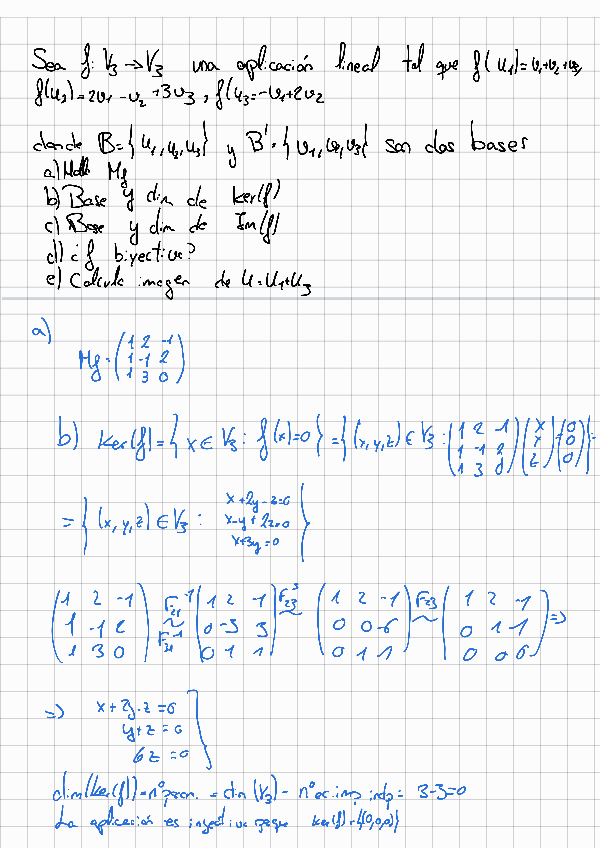 Sea f: V₃ → V₃ una aplicación lineal tal que f(u₁)=v₁+v₂+v₃,
f(u₂)=2v₁-v₂+3v₃, f(u₃=-v₁+2v₂
donde B={u₁,u₂,u₃} y B'={v₁,v₂,v₃} son dos bases
a) Halla Mf
b) Base y dim de ker(f)
c) Base y dim de Im(f)
d) ¿f biyectiva?
e) Calcula imagen de u=u₁+u₃
a)
Mf = (1 2 -1
1 -1 2
1 3 0)
b) Ker(f)={x∈V₃: f(x)=0}={(x,y,z)∈V₃: (1 2 -1; 1 -1 2; 1 3 0)(x; y; z)=(0; 0; 0)}=
={(x,y,z)∈V₃: x+2y-z=0
x-y+2z=0
x+3y=0}
(1 2 -1; 1 -1 2; 1 3 0) F₂₁⁻¹ ~ F₃₁⁻¹ (1 2 -1; 0 -3 3; 0 1 1) F₂₃³ ~ (1 2 -1; 0 0 6; 0 1 1) F₂₃ ~ (1 2 -1; 0 1 1; 0 0 6) =>
=> x+2y-z=0
y+z=0
6z=0}
dim(ker(f))=nº param.=dim(V₃)- nº ec. imp. indp= 3-3=0
La aplicación es inyectiva porque ker(f)={(0,0,0)}